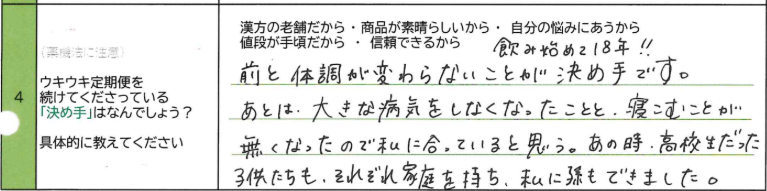 (薬機法に注意)
4
ウキウキ定期便を
続けてくださっている
「決め手」はなんでしょう?
具体的に教えてください
漢方の老舗だから ・ 商品が素晴らしいから ・ 自分の悩みにあうから
値段が手頃だから ・ 信頼できるから
飲み始めて18年!!
前と体調が変わらないことが決め手です。
あとは、大きな病気をしなくなったことと、寝こむことが
無くなったので私に合っていると思う。あの時、高校生だった
子供たちも、それぞれ家庭を持ち、私に孫もできました。